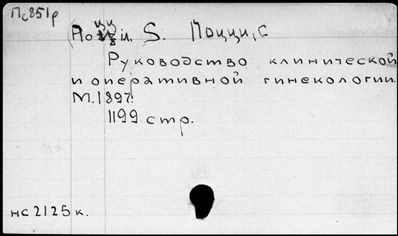 Пс851р
Поцци, S. Поцци, С
Руководство клинической
и оперативной гинекологии.
М. 1897.
1199 стр.
нс2125к.